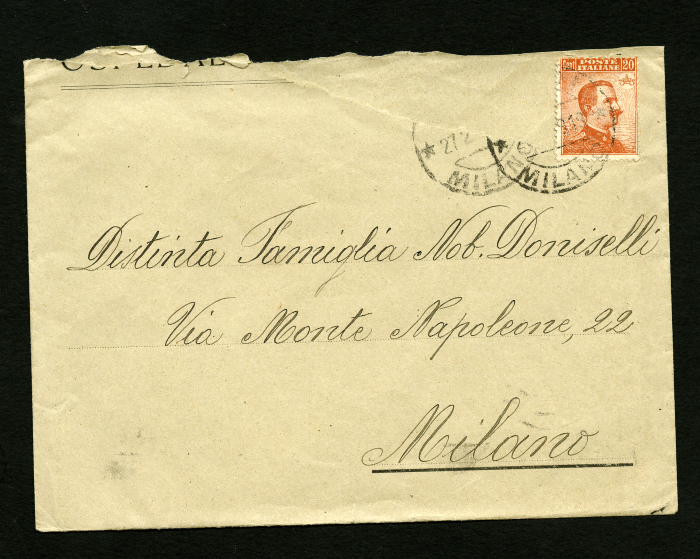 OSPEDALE
POSTE
ITALIANE
20
27.2
MILA
MILANO
Distinta Famiglia Nob. Doniselli
Via Monte Napoleone, 22
Milano